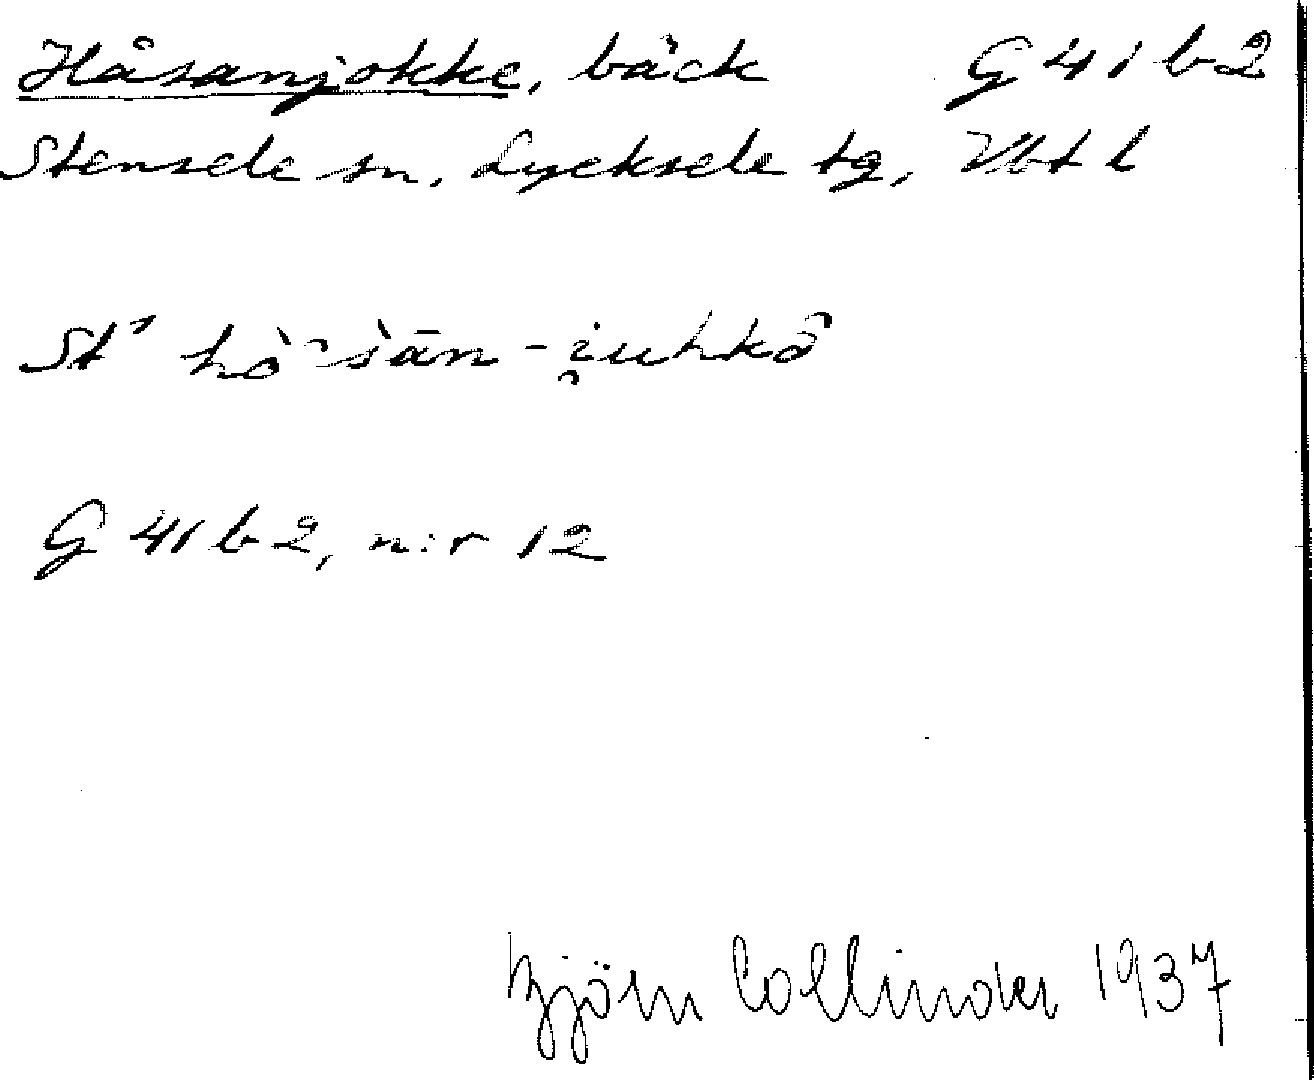 Håsanjokke, bäck G 41 b 2
Stensele sn, Lycksele tg, Vbt l
G 41 b 2, n:r 12
Björn Collinder 1937